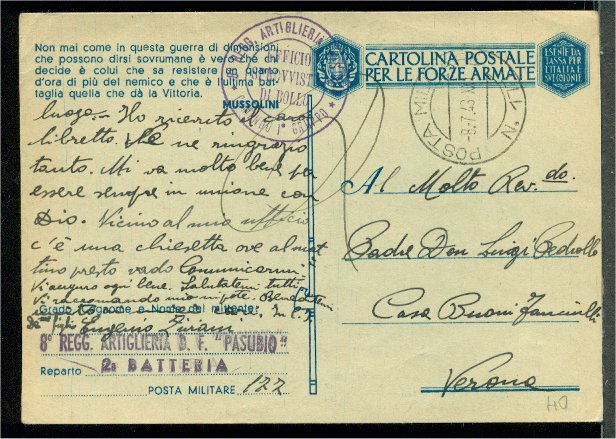 Non mai come in questa guerra di dimensioni
che possono dirsi sovrumane è vero che chi
decide è colui che sa resistere un quarto
d'ora di più del nemico e che è l'ultima bat-
taglia quella che dà la Vittoria.
MUSSOLINI
luogo - Ho ricevuto il caro
libretto. Ve ne ringrazio
tanto. Mi va molto bene per
essere sempre in unione con
Dio. Vicino al mio ufficio
c'è una chiesetta ove al mat
tino presto vado Comunicarmi.
Vi auguro ogni bene. Salutatemi tutti
Vi raccomando mio nipote. Beneditemi
Grado, Cognome e Nome del mittente:
Eugenio
8º REGG. ARTIGLIERIA D. F. "PASUBIO"
2ª BATTERIA
Reparto
POSTA MILITARE 122
REGG. ARTIGLIERIA
UFFICIO
DI BOLLO
CARTOLINA POSTALE
PER LE FORZE ARMATE
ESENTE DA
TASSA PER
L'ITALIA E
POSTA MIL
-8.7.43
Al Molto Rev.do.
Padre Don Luigi Pedrollo
Casa Buoni Fanciulli
Verona